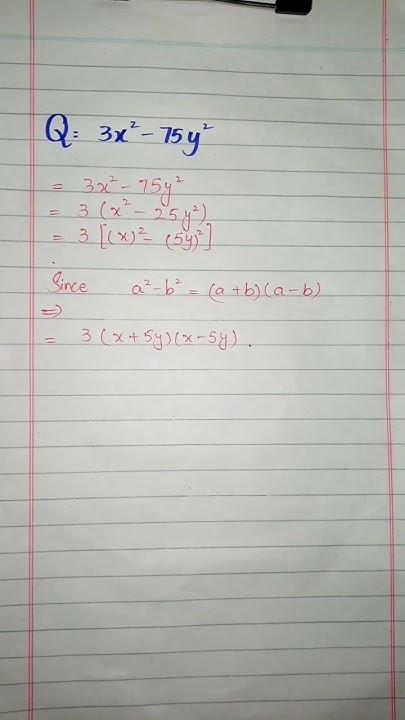 Q: 3x² - 75y²
= 3x² - 75y²
= 3 (x² - 25y²)
= 3 [(x)² - (5y)²]
Since a² - b² = (a + b) (a - b)
⇒
= 3 (x + 5y) (x - 5y).